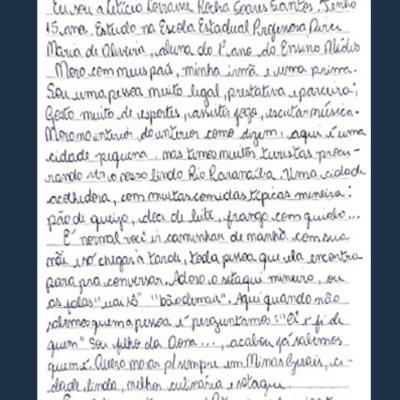 Eu sou a Letícia Lorraine Rocha Soares Santos. Tenho
15 anos. Estudo na Escola Estadual Professora Dirce
Maria de Oliveira, aluna do 1º ano do Ensino Médio
Moro com meus pais, minha irmã e uma prima.
Sou uma pessoa muito legal, prestativa e parceira;
Gosto muito de esportes, assistir jogo, escutar música.
Moro no interior, do interior como dizem, aqui é uma
cidade pequena, mas temos muitos turistas procu-
rando ver o nosso lindo Rio Paranaíba. Uma cidade
acolhedora, com muitas comidas típicas mineira:
pão de queijo, doci de leite, frango com quiabo...
É normal você ir caminhar de manhã com sua
mãe e só chegar à tarde, toda pessoa que ela encontra
para pra conversar. Adoro o sotaqui mineiro, ou
as falas "uai sô" "bão demais". Aqui quando não
sabemos quem a pessoa é perguntamos: "Cê é fi de
quem" Sou filho da Dona..., acabou já sabemos
quem é. Quero morar p/ sempre em Minas Gerais, ci-
dade linda, melhor culinária e sotaque.